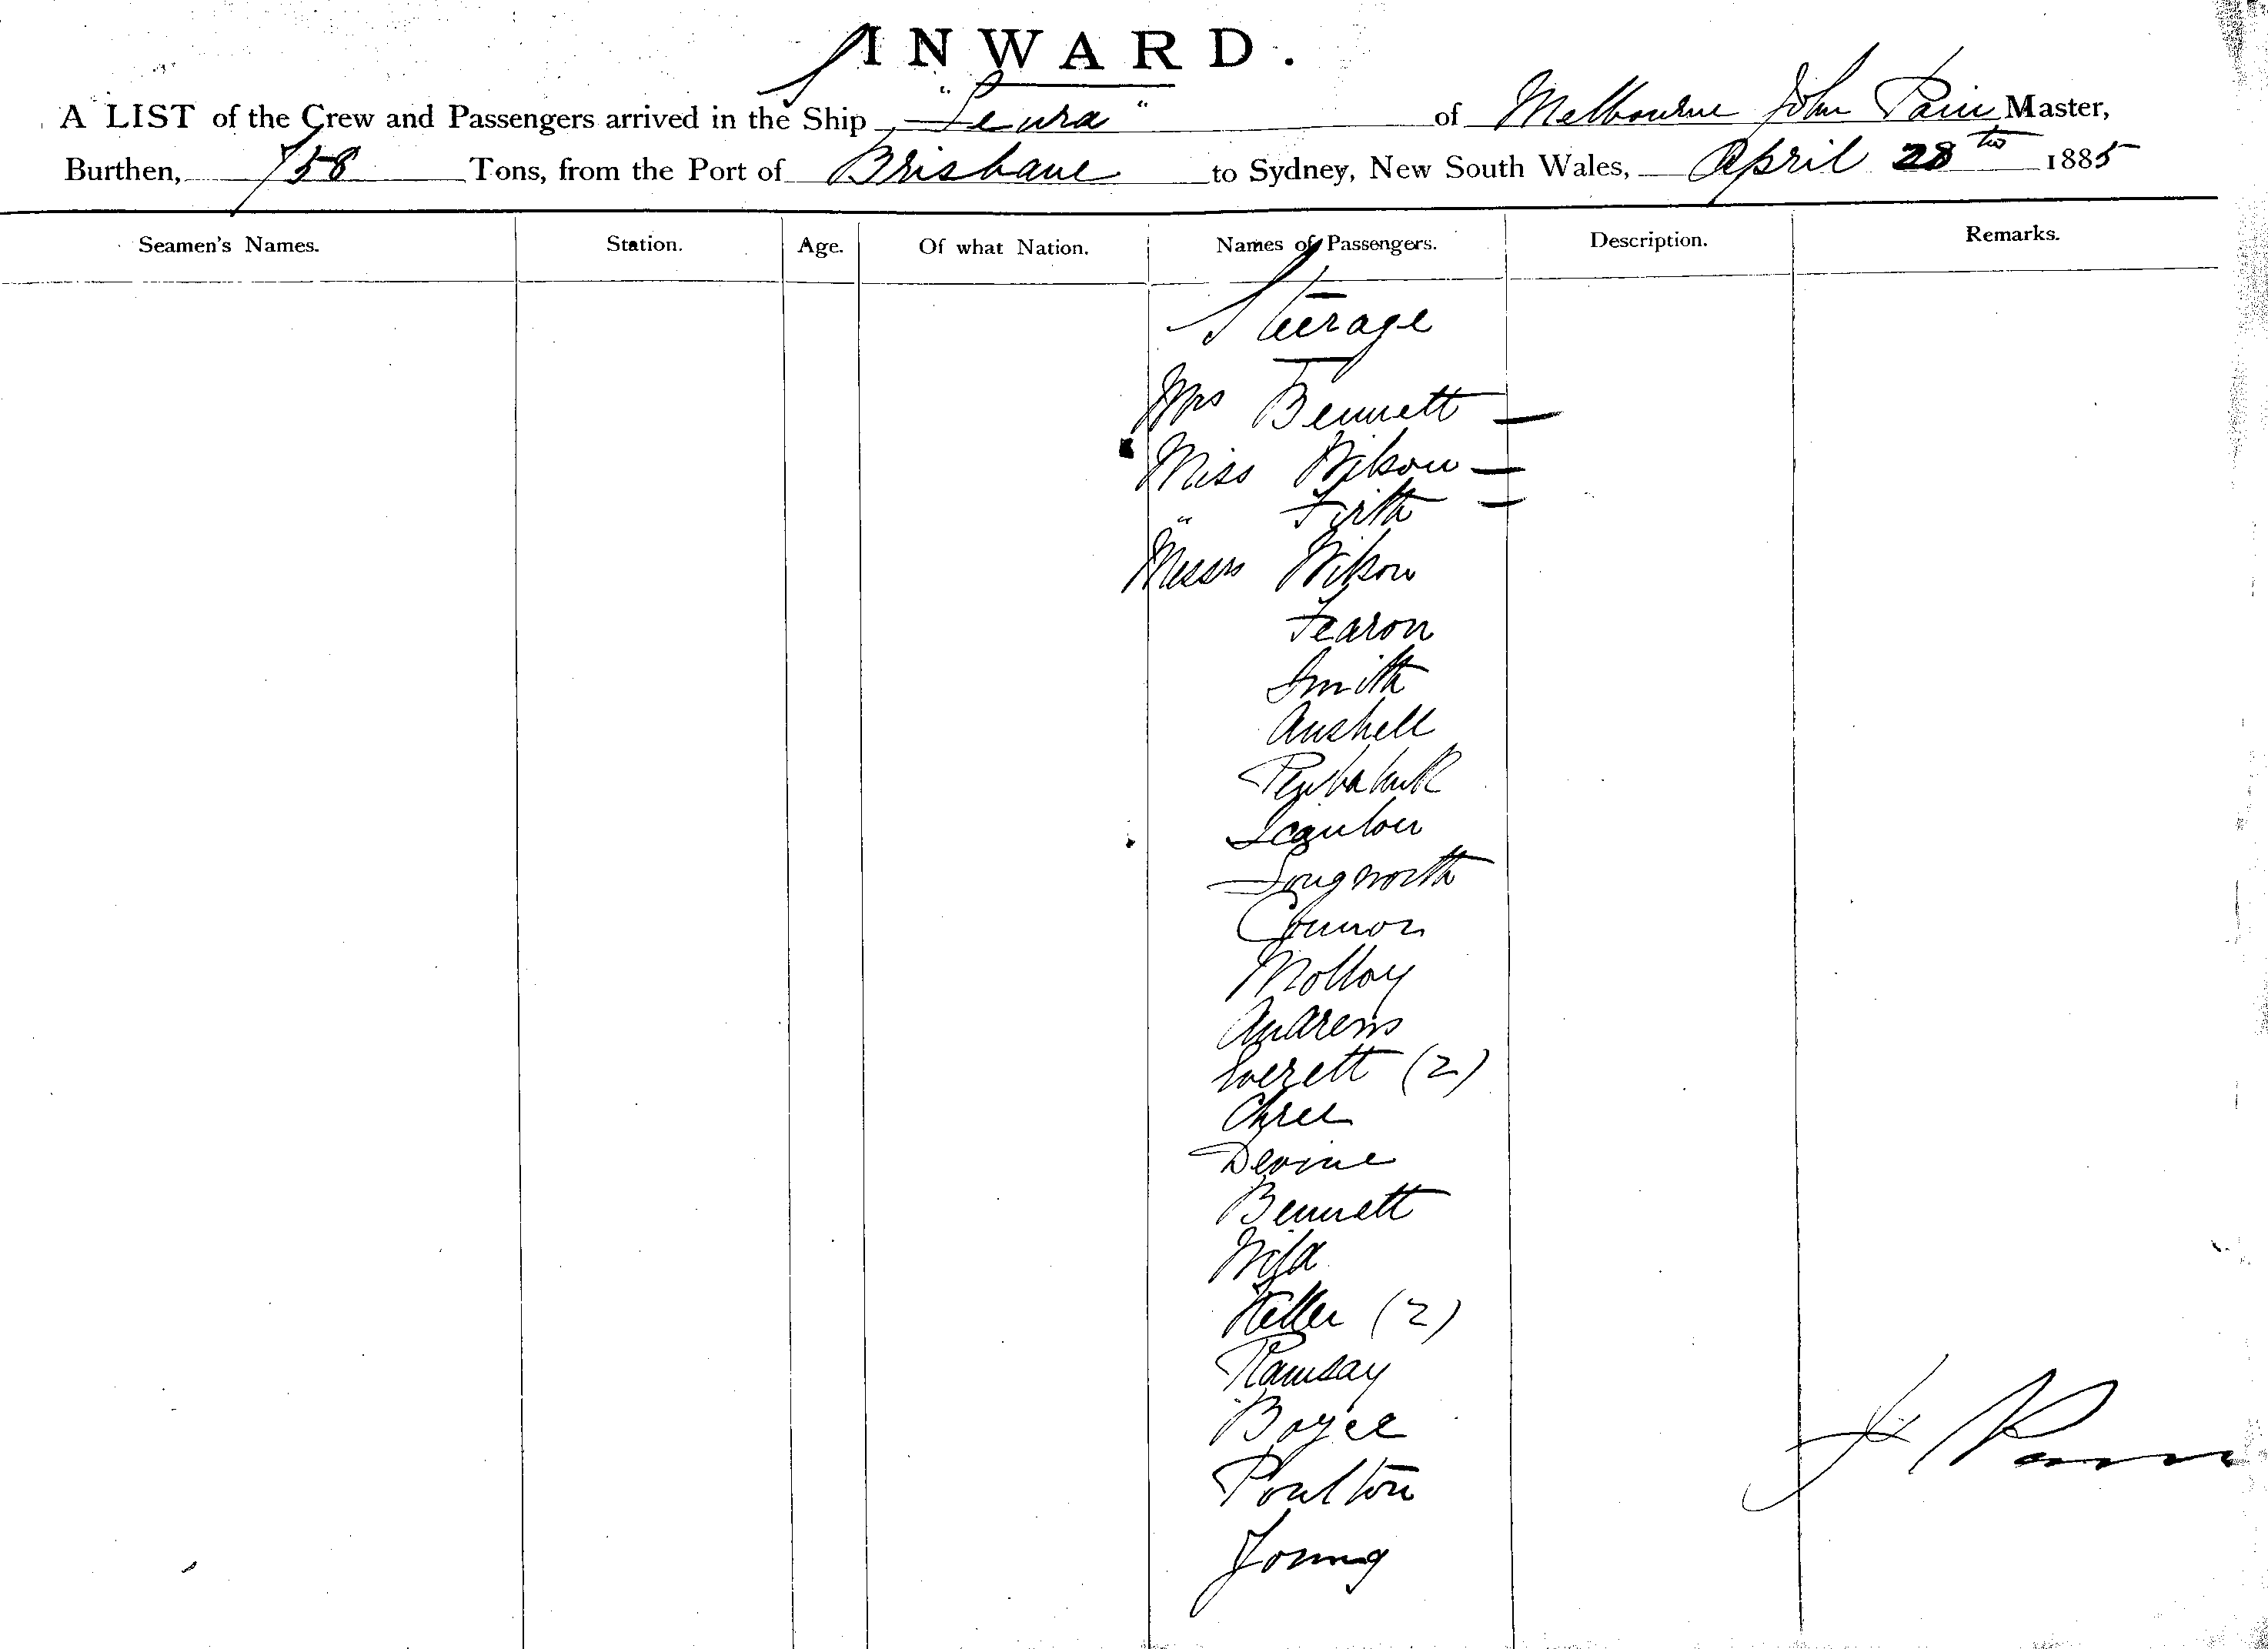 INWARD.
A LIST of the Crew and Passengers arrived in the Ship "Leura" of Melbourne John Pain Master,
Burthen, 758 Tons, from the Port of Brisbane to Sydney, New South Wales, April 28th 1885
Seamen's Names. Station. Age. Of what Nation. Names of Passengers. Description. Remarks.
Steerage
Mrs Bennett —
Miss Wilson —
" Firth —
Messrs Wilson
Fearon
Smith
Anshell
Scanlon
Longworth
Connor
Molloy
Andrews
Everett (2)
Chree
Devine
Bennett
Wild
Keller (2)
Ramsay
Boyce
Poulton
Young
J Pain